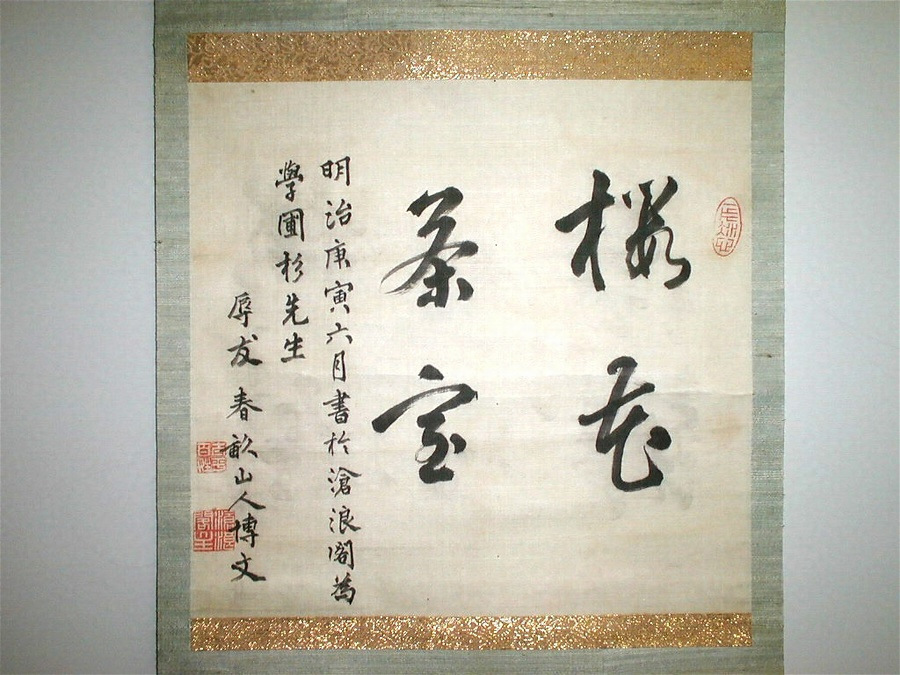 櫻花
茶室
明治庚寅六月書於滄浪閣為
學圃杉先生
辱友 春畝山人博文